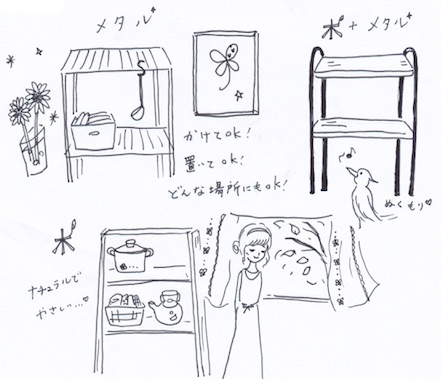 メタル
木+メタル
かけてok!
置いてok!
どんな場所にもok!
ぬくもり♡
木
ナチュラルで
やさしい...♡